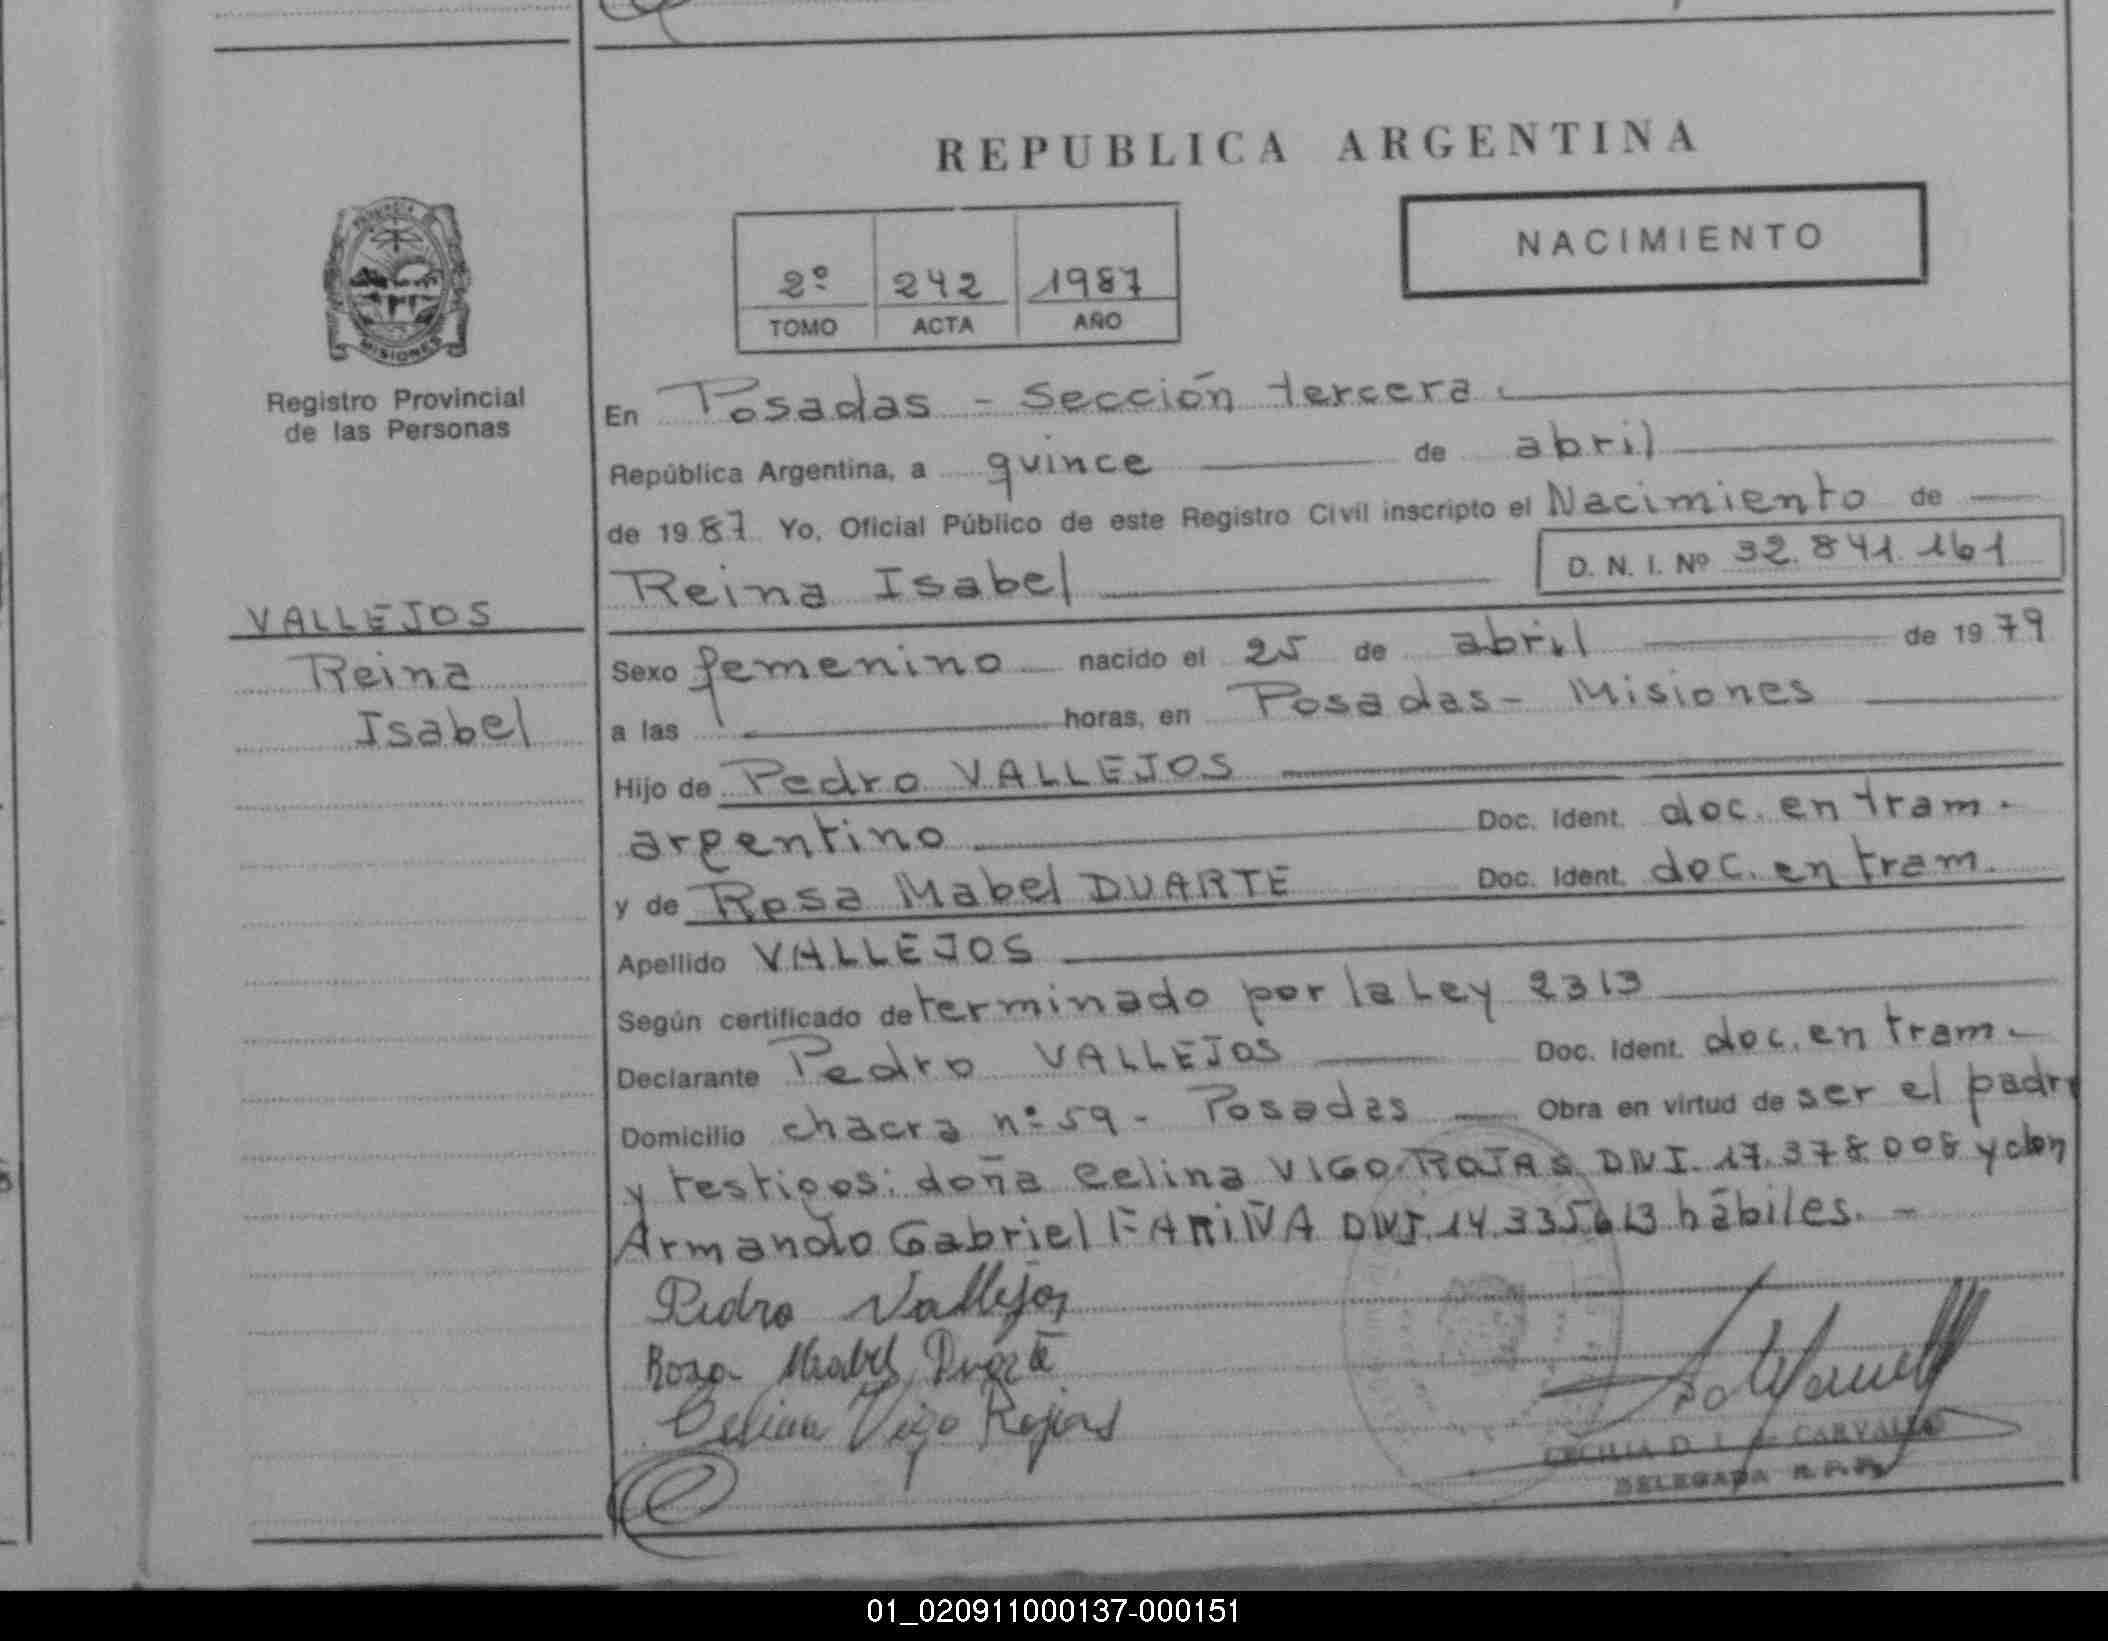 REPUBLICA ARGENTINA
NACIMIENTO
2º 242 1987
TOMO ACTA AÑO
MISIONES
Registro Provincial
de las Personas
VALLEJOS
Reina
Isabel
En Posadas - Sección tercera.
República Argentina, a quince de abril
de 1987 Yo, Oficial Público de este Registro Civil inscripto el Nacimiento de
Reina Isabel D. N. I. Nº 32.841.161
Sexo femenino nacido el 25 de abril de 1979
a las horas, en Posadas - Misiones
Hijo de Pedro VALLEJOS
argentino Doc. Ident. doc. en tram.
y de Rosa Mabel DUARTE Doc. Ident. doc. en tram.
Apellido VALLEJOS
Según certificado determinado por la Ley 2313
Declarante Pedro VALLEJOS Doc. Ident. doc. en tram.
Domicilio chacra nº 59 - Posadas Obra en virtud de ser el padre
y testigos: doña Celina VIGO ROJAS DNI. 17.378.008 y don
Armando Gabriel FARIÑA DNI. 14.335.613 hábiles. -
Pedro Vallejos
Rosa Mabel Duarte
Celina Vigo Rojas
CECILIA D. CARVALLO
DELEGADA R.P.P.
01_020911000137-000151